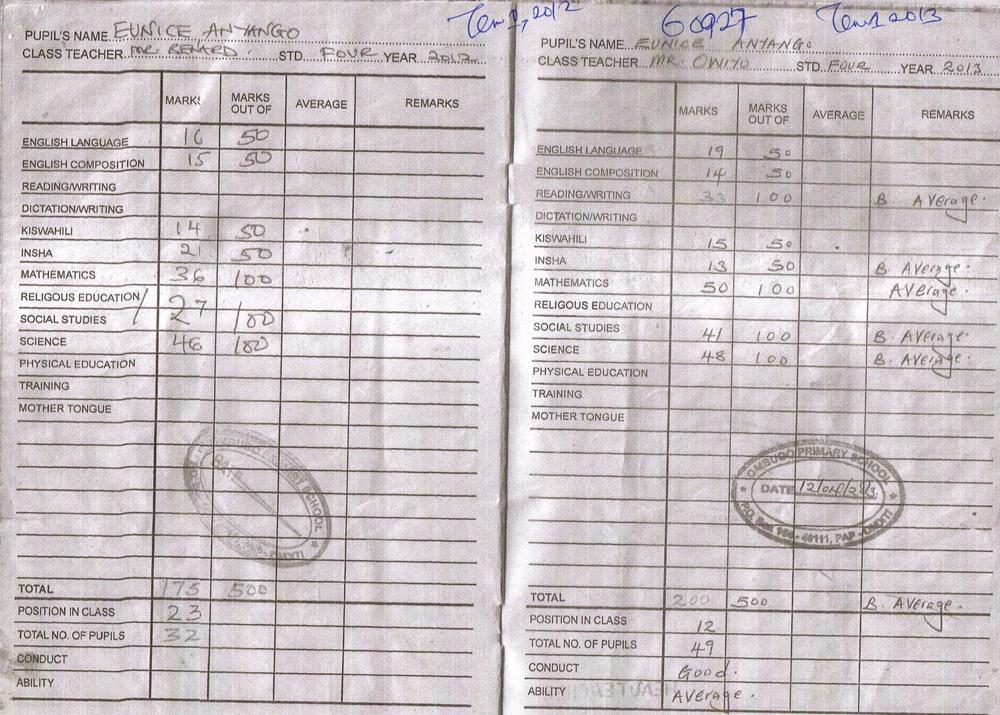 Term 1, 2012
PUPIL'S NAME EUNICE ANYANGO
CLASS TEACHER MR. BENARD. STD FOUR YEAR 2012
MARKS MARKS OUT OF AVERAGE REMARKS
ENGLISH LANGUAGE 16 50
ENGLISH COMPOSITION 15 50
READING/WRITING
DICTATION/WRITING
KISWAHILI 14 50
INSHA 21 50
MATHEMATICS 36 100
RELIGOUS EDUCATION/
SOCIAL STUDIES 27 100
SCIENCE 46 100
PHYSICAL EDUCATION
TRAINING
MOTHER TONGUE
PRIMARY SCHOOL
DATE
PAP - ONDITI
TOTAL 175 500
POSITION IN CLASS 23
TOTAL NO. OF PUPILS 32
CONDUCT
ABILITY
60927 Term 1 2013
PUPIL'S NAME EUNICE ANYANGO
CLASS TEACHER MR. OWITU STD FOUR YEAR 2013
MARKS MARKS OUT OF AVERAGE REMARKS
ENGLISH LANGUAGE 19 50
ENGLISH COMPOSITION 14 50
READING/WRITING 33 100 B. Average.
DICTATION/WRITING
KISWAHILI 15 50
INSHA 13 50 B. Average.
MATHEMATICS 50 100 Average.
RELIGOUS EDUCATION
SOCIAL STUDIES 41 100 B. Average.
SCIENCE 48 100 B. Average.
PHYSICAL EDUCATION
TRAINING
MOTHER TONGUE
OMBUGO PRIMARY SCHOOL
DATE 12/04/2013
P.O. Box 164 - 40111, PAP - ONDITI
TOTAL 200 500 B. Average.
POSITION IN CLASS 12
TOTAL NO. OF PUPILS 49
CONDUCT Good.
ABILITY Average.